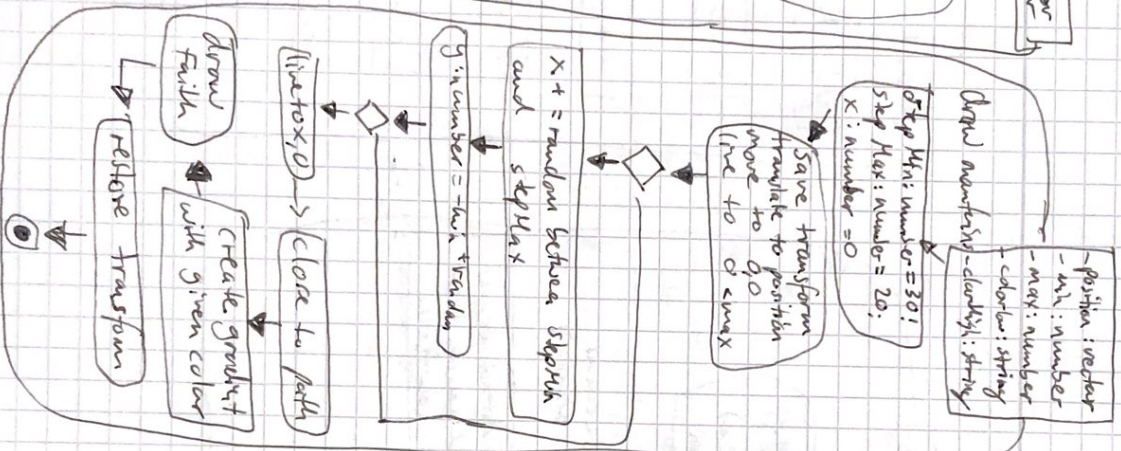 or
-position : vector
-min : number
-max : number
-colorlow : string
-colorHigh : string
draw mountains
stepMin : number = 30 ;
stepMax : number = 20 ;
x : number = 0
Save transform
translate to position
move to 0,0
line to 0 <max
x + = random between stepMin
and stepMax
y : number = -min + random
line to x,0
close to path
create gradient
with given color
draw
restore transform